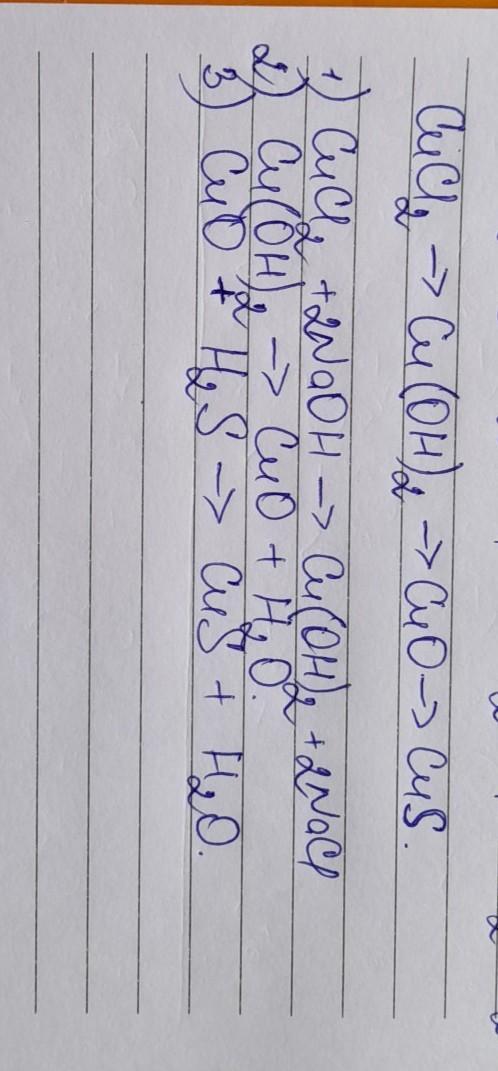 CuCl₂ → Cu(OH)₂ → CuO → CuS.
1) CuCl₂ + 2NaOH → Cu(OH)₂ + 2NaCl
2) Cu(OH)₂ → CuO + H₂O.
3) CuO + H₂S → CuS + H₂O.